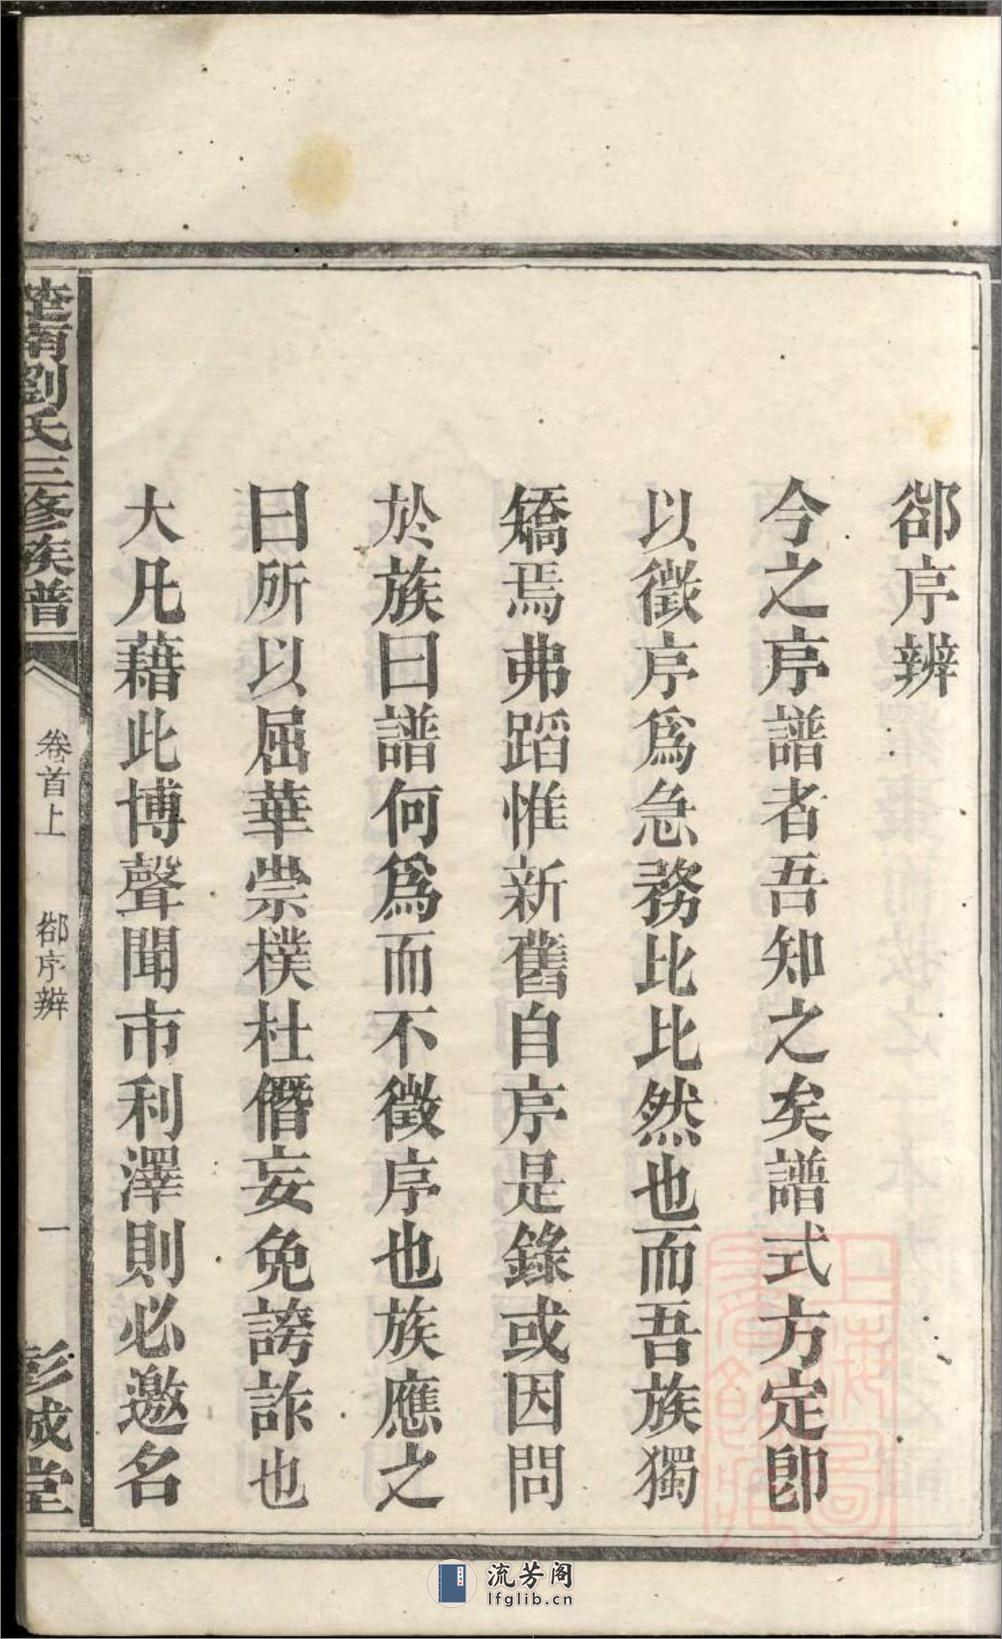 郤序辨
今之序譜者吾知之矣譜式方定卽
以徵序爲急務比比然也而吾族獨
矯焉弗蹈惟新舊自序是錄或因問
於族曰譜何爲而不徵序也族應之
曰所以屈華崇樸杜僭妄免誇詐也
大凡藉此博聲聞市利澤則必邀名
南劉氏三修族譜
卷首上
郤序辨
一
彭城堂
上海圖
流芳阁
lfglib.cn